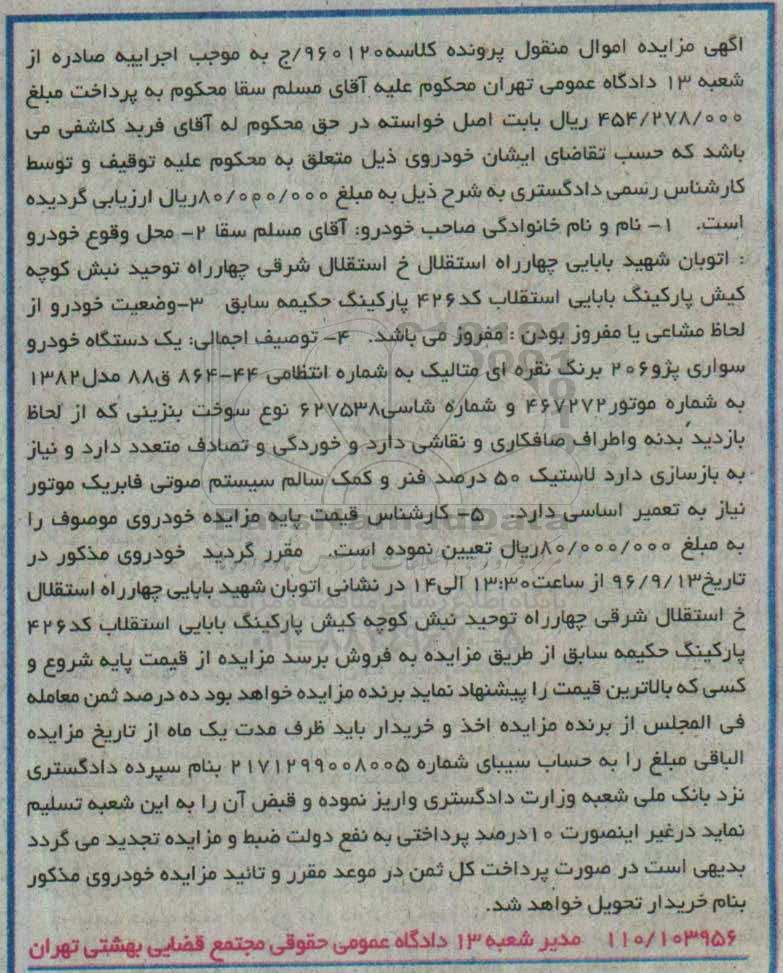 آگهی مزایده اموال منقول پرونده کلاسه۹۶۰۱۲۰/ج به موجب اجراییه صادره از
شعبه ۱۳ دادگاه عمومی تهران محکوم علیه آقای مسلم سقا محکوم به پرداخت مبلغ
۴۵۴/۲۷۸/۰۰۰ ریال بابت اصل خواسته در حق محکوم له آقای فربد کاشفی می
باشد که حسب تقاضای ایشان خودروی ذیل متعلق به محکوم علیه توقیف و توسط
کارشناس رسمی دادگستری به شرح ذیل به مبلغ ۸۰/۰۰۰/۰۰۰ریال ارزیابی گردیده
است. ۱- نام و نام خانوادگی صاحب خودرو: آقای مسلم سقا ۲- محل وقوع خودرو
: اتوبان شهید بابایی چهارراه استقلال خ استقلال شرقی چهارراه توحید نبش کوچه
کیش پارکینگ بابایی استقلاب کد۴۲۶ پارکینگ حکیمه سابق ۳-وضعیت خودرو از
لحاظ مشاعی یا مفروز بودن : مفروز می باشد. ۴- توصیف اجمالی: یک دستگاه خودرو
سواری پژو۲۰۶ برنگ نقره ای متالیک به شماره انتظامی ۴۴-۸۶۴ ق۸۸ مدل۱۳۸۲
به شماره موتور۴۶۷۲۷۲ و شماره شاسی۶۲۷۵۳۸ نوع سوخت بنزینی که از لحاظ
بازدید بدنه واطراف صافکاری و نقاشی دارد و خوردگی و تصادف متعدد دارد و نیاز
به بازسازی دارد لاستیک ۵۰ درصد فنر و کمک سالم سیستم صوتی فابریک موتور
نیاز به تعمیر اساسی دارد. ۵- کارشناس قیمت پایه مزایده خودروی موصوف را
به مبلغ ۸۰/۰۰۰/۰۰۰ریال تعیین نموده است. مقرر گردید خودروی مذکور در
تاریخ۹۶/۹/۱۳ از ساعت۱۳:۳۰ الی۱۴ در نشانی اتوبان شهید بابایی چهارراه استقلال
خ استقلال شرقی چهارراه توحید نبش کوچه کیش پارکینگ بابایی استقلاب کد۴۲۶
پارکینگ حکیمه سابق از طریق مزایده به فروش برسد مزایده از قیمت پایه شروع و
کسی که بالاترین قیمت را پیشنهاد نماید برنده مزایده خواهد بود ده درصد ثمن معامله
فی المجلس از برنده مزایده اخذ و خریدار باید ظرف مدت یک ماه از تاریخ مزایده
الباقی مبلغ را به حساب سیبای شماره ۲۱۷۱۲۹۹۰۰۸۰۰۵ بنام سپرده دادگستری
نزد بانک ملی شعبه وزارت دادگستری واریز نموده و قبض آن را به این شعبه تسلیم
نماید درغیر اینصورت ۱۰درصد پرداختی به نفع دولت ضبط و مزایده تجدید می گردد
بدیهی است در صورت پرداخت کل ثمن در موعد مقرر و تائید مزایده خودروی مذکور
بنام خریدار تحویل خواهد شد.
۱۱۰/۱۰۳۹۵۶ مدیر شعبه ۱۳ دادگاه عمومی حقوقی مجتمع قضایی بهشتی تهران